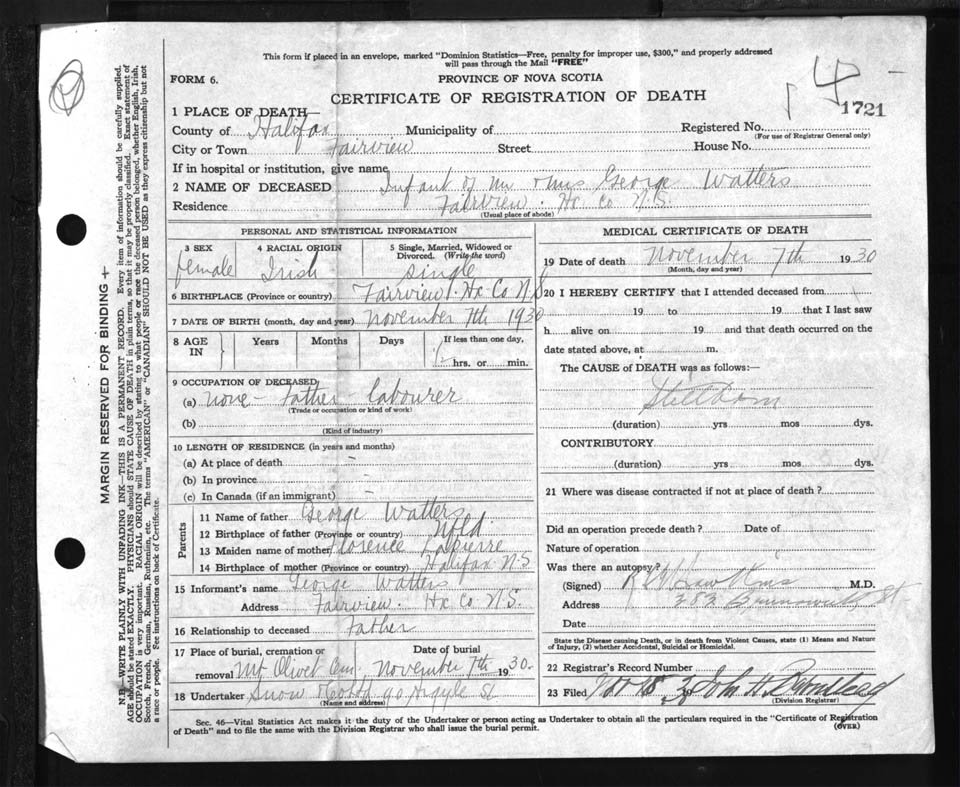 This form if placed in an envelope, marked "Dominion Statistics—Free, penalty for improper use, $300," and properly addressed
will pass through the Mail "FREE"
FORM 6.
PROVINCE OF NOVA SCOTIA
CERTIFICATE OF REGISTRATION OF DEATH
1721
1 PLACE OF DEATH—
County of Halifax Municipality of Registered No.
(For use of Registrar General only)
City or Town Fairview Street House No.
If in hospital or institution, give name
2 NAME OF DECEASED Infant of Mr & Mrs George Watters
Residence Fairview. Hx Co N.S.
(Usual place of abode)
PERSONAL AND STATISTICAL INFORMATION
3 SEX 4 RACIAL ORIGIN 5 Single, Married, Widowed or
Divorced. (Write the word)
female Irish single
6 BIRTHPLACE (Province or country) Fairview. Hx Co N S
7 DATE OF BIRTH (month, day and year) November 7th 1930
8 AGE IN Years Months Days If less than one day,
hrs. or min.
9 OCCUPATION OF DECEASED
(a) none - father - labourer
(Trade or occupation or kind of work)
(b)
(Kind of industry)
10 LENGTH OF RESIDENCE (in years and months)
(a) At place of death -
(b) In province -
(c) In Canada (if an immigrant) -
Parents
11 Name of father George Watters
12 Birthplace of father (Province or country) Nfld
13 Maiden name of mother Florence Lapierre
14 Birthplace of mother (Province or country) Halifax N.S
15 Informant's name George Watters
Address Fairview. Hx Co N.S.
16 Relationship to deceased Father
17 Place of burial, cremation or removal Date of burial
Mt Olivet Cem. November 7th 1930.
18 Undertaker Snow & Co Ltd 90 Argyle St
(Name and address)
MEDICAL CERTIFICATE OF DEATH
19 Date of death November 7th 1930
(Month, day and year)
20 I HEREBY CERTIFY that I attended deceased from
19 to 19 that I last saw
h alive on 19 and that death occurred on the
date stated above, at m.
The CAUSE of DEATH was as follows:—
Stillborn
(duration) yrs mos dys.
CONTRIBUTORY
(duration) yrs mos dys.
21 Where was disease contracted if not at place of death?
Did an operation precede death? Date of
Nature of operation
Was there an autopsy?
(Signed) M.D.
Address 282 Brunswick St
Date
State the Disease causing Death, or in death from Violent Causes, state (1) Means and Nature
of Injury, (2) whether Accidental, Suicidal or Homicidal.
22 Registrar's Record Number
23 Filed Nov 18 30 John H.
(Division Registrar)
Sec. 46—Vital Statistics Act makes it the duty of the Undertaker or person acting as Undertaker to obtain all the particulars required in the "Certificate of Registration
of Death" and to file the same with the Division Registrar who shall issue the burial permit.
(OVER)
MARGIN RESERVED FOR BINDING
N.B.—WRITE PLAINLY WITH UNFADING INK—THIS IS A PERMANENT RECORD. Every item of information should be carefully supplied.
AGE should be stated EXACTLY. PHYSICIANS should STATE CAUSE OF DEATH in plain terms, so that it may be properly classified. Exact statement of
OCCUPATION is very important. RACIAL ORIGIN will be described by stating to what people or race the deceased person belonged, whether English, Irish,
Scotch, French, German, Russian, Ruthenian, etc. The terms "AMERICAN" or "CANADIAN" SHOULD NOT BE USED as they express citizenship but not
a race or people. See instructions on back of Certificate.